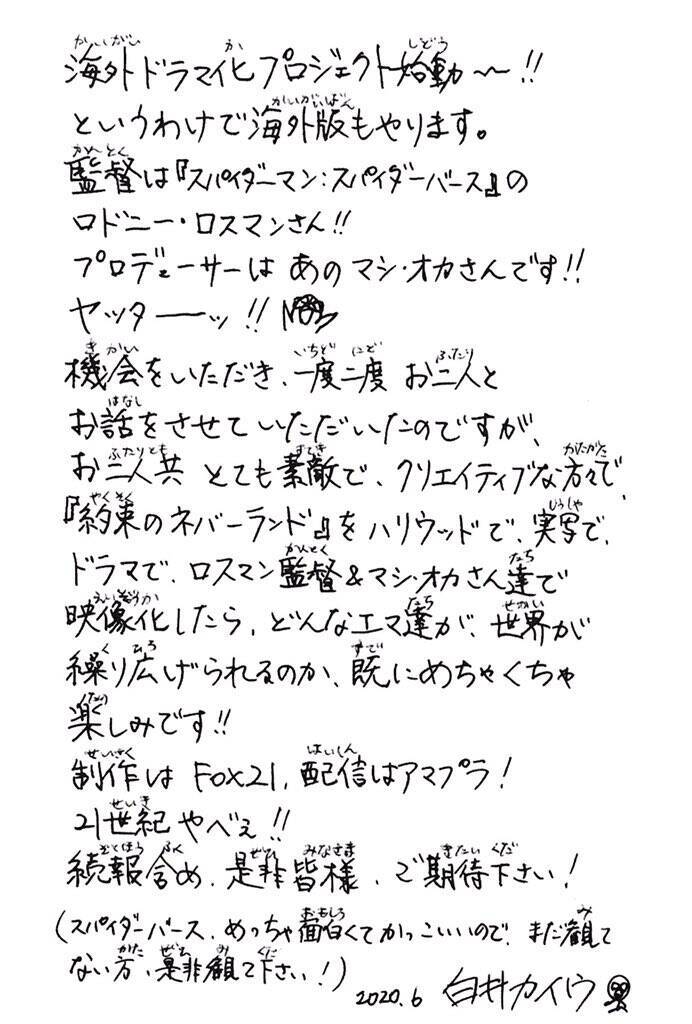 海外ドラマ化プロジェクト始動〜!!
というわけで海外版もやります。
監督は『スパイダーマン:スパイダーバース』の
ロドニー・ロスマンさん!!
プロデューサーは あの マシ・オカさんです!!
ヤッターーッ!!
機会をいただき、一度二度 お二人と
お話をさせていただいたのですが、
お二人共 とても素敵で、クリエイティブな方々で、
『約束のネバーランド』をハリウッドで、実写で、
ドラマで、ロスマン監督&マシ・オカさん達で
映像化したら、どんなエマ達が、世界が
繰り広げられるのか、既にめちゃくちゃ
楽しみです!!
制作は FOX21、配信はアマプラ!
21世紀やべぇ!!
続報含め、是非皆様、ご期待下さい!
(スパイダーバース、めっちゃ面白くてかっこいいので、まだ観て
ない方、是非観て下さい!)
2020.6 白井カイウ